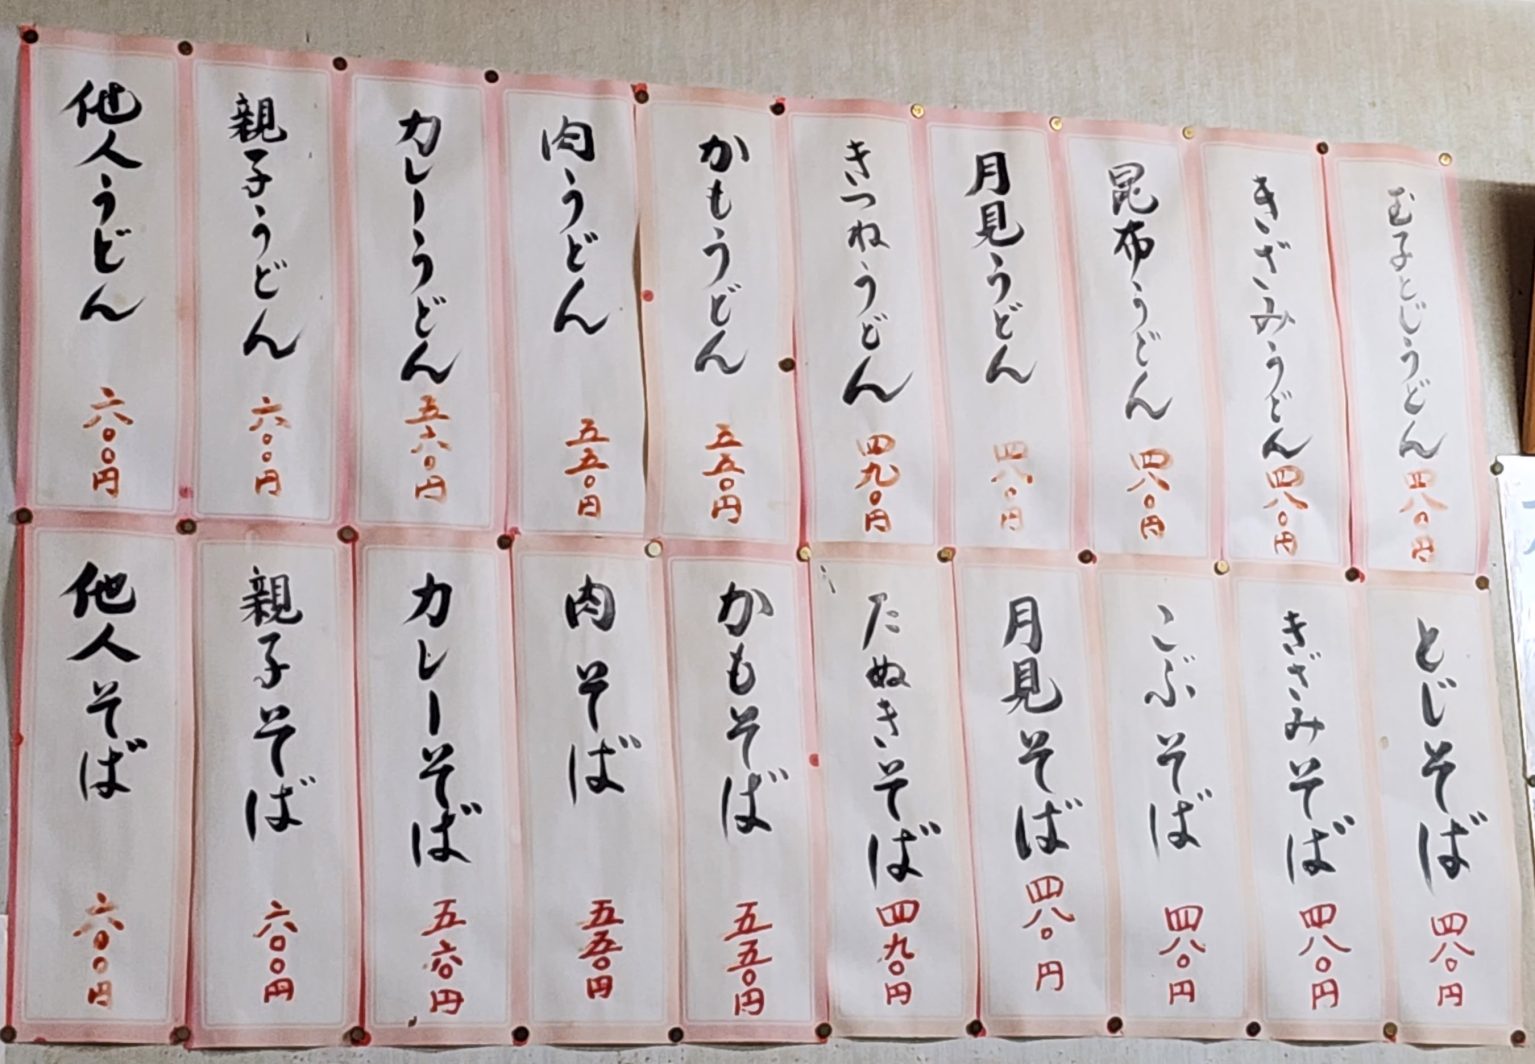 玉子とじうどん 四八〇円
きざみうどん 四八〇円
昆布うどん 四八〇円
月見うどん 四八〇円
きつねうどん 四九〇円
かもうどん 五五〇円
肉うどん 五五〇円
カレーうどん 五六〇円
親子うどん 六〇〇円
他人うどん 六〇〇円
とじそば 四八〇円
きざみそば 四八〇円
こぶそば 四八〇円
月見そば 四八〇円
たぬきそば 四九〇円
かもそば 五五〇円
肉そば 五五〇円
カレーそば 五六〇円
親子そば 六〇〇円
他人そば 六〇〇円